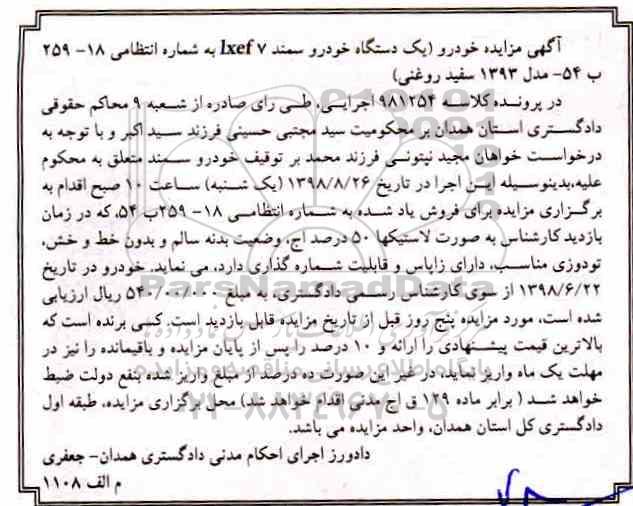 آگهی مزایده خودرو (یک دستگاه خودرو سمند lxef ۷ به شماره انتظامی ۱۸- ۲۵۹
ب ۵۴- مدل ۱۳۹۳ سفید روغنی)
در پرونده کلاسه ۹۸۱۲۵۴ اجرایی، طی رای صادره از شعبه ۹ محاکم حقوقی
دادگستری استان همدان بر محکومیت سید مجتبی حسینی فرزند سید اکبر و با توجه به
درخواست خواهان مجید نپتونی فرزند محمد بر توقیف خودرو سمند متعلق به محکوم
علیه،بدینوسیله این اجرا در تاریخ ۱۳۹۸/۸/۲۶ (یک شنبه) ساعت ۱۰ صبح اقدام به
برگزاری مزایده برای فروش یاد شده به شماره انتظامی ۱۸- ۲۵۹ب ۵۴، که در زمان
بازدید کارشناس به صورت لاستیکها ۵۰ درصد آج، وضعیت بدنه سالم و بدون خط و خش،
تودوزی مناسب، دارای زاپاس و قابلیت شماره گذاری دارد، می نماید. خودرو در تاریخ
۱۳۹۸/۶/۲۲ از سوی کارشناس رسمی دادگستری، به مبلغ ۵۴۰/۰۰۰/۰۰۰ ریال ارزیابی
شده است، مورد مزایده پنج روز قبل از تاریخ مزایده قابل بازدید است. کسی برنده است که
بالاترین قیمت پیشنهادی را ارائه و ۱۰ درصد را پس از پایان مزایده و باقیمانده را نیز در
مهلت یک ماه واریز نماید، در غیر این صورت ده درصد از مبلغ واریز شده بنفع دولت ضبط
خواهد شد ( برابر ماده ۱۲۹ ق اج مدنی اقدام خواهد شد) محل برگزاری مزایده، طبقه اول
دادگستری کل استان همدان، واحد مزایده می باشد.
دادورز اجرای احکام مدنی دادگستری همدان- جعفری
م الف ۱۱۰۸
ParsNamadData
پایگاه اطلاع رسانی مناقصه و مزایده
۰۲۱-۸۸۳۴۹۶۷۰-۵